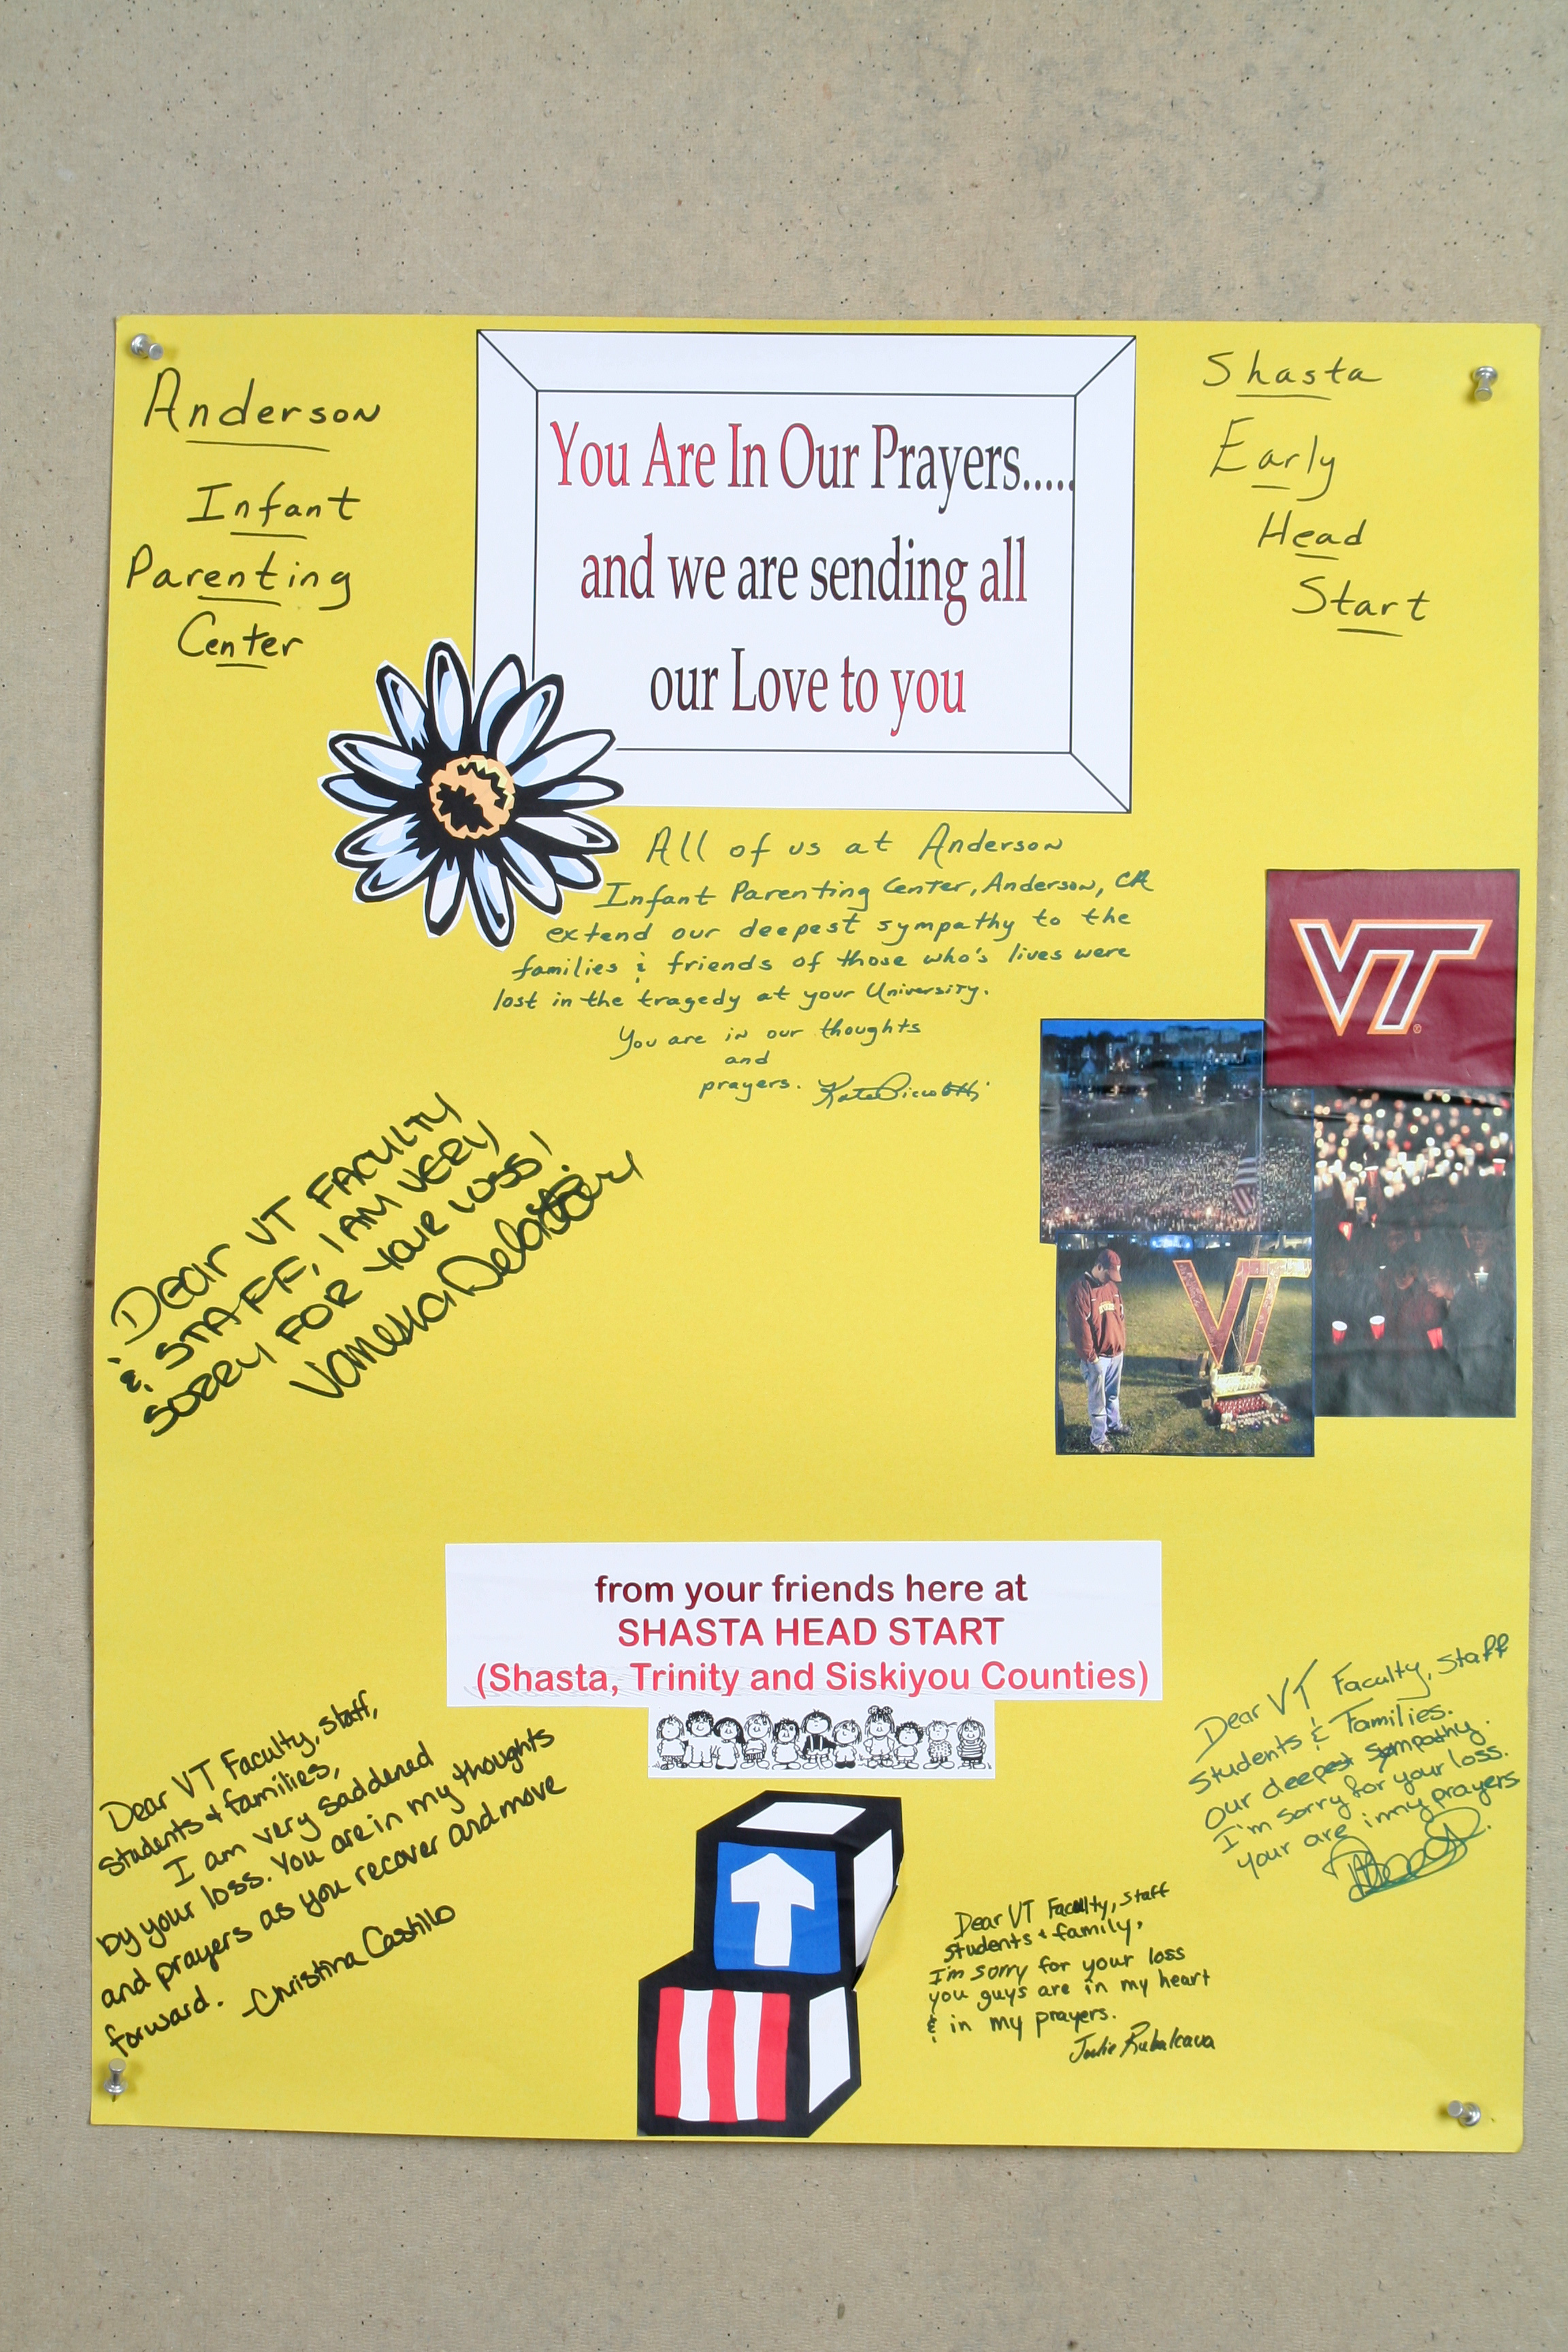 Anderson
Infant
Parenting
Center
You Are In Our Prayers.....
and we are sending all
our Love to you
Shasta
Early
Head
Start
All of us at Anderson
Infant Parenting Center, Anderson, CA
extend our deepest sympathy to the
families & friends of those who's lives were
lost in the tragedy at your University.
You are in our thoughts
and
prayers.
VT
VT
Dear VT FACULTY
& STAFF, I AM VERY
SORRY FOR YOUR LOSS!
from your friends here at
SHASTA HEAD START
(Shasta, Trinity and Siskiyou Counties)
Dear VT Faculty, staff,
students & families,
I am very saddened
by your loss. You are in my thoughts
and prayers as you recover and move
forward. -Christina Castillo
Dear VT Faculty, Staff
students & family,
I'm sorry for your loss
you guys are in my heart
& in my prayers.
Julie Rubalcava
Dear VT Faculty, staff
students & Families.
Our deepest sympathy.
I'm sorry for your loss.
your are in my prayers